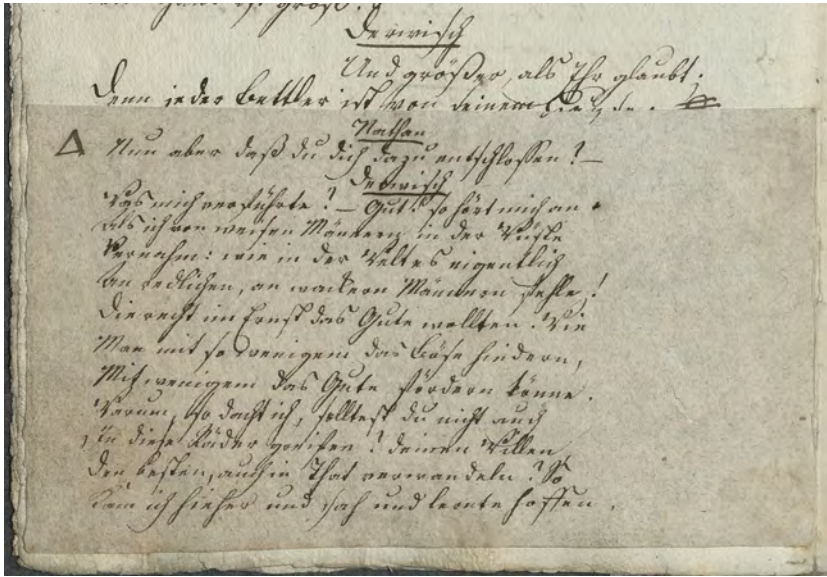 Derwisch
Und größer, als Ihr glaubt.
Denn jeder Bettler ist von seinem Hause.
Nathan
Nun aber daß du dich dazu entschlossen? –
Derwisch
Was mich verführte? – Gut! so hört mich an.
Als ich von weisen Männern in der Wüste
Vernahm: wie in der Welt es eigentlich
An redlichen, an wackern Männern fehle,
Die recht im Ernst das Gute wollten. Wie
Man mit so wenigem das Böse hindern,
Mit wenigem das Gute fördern könne.
Warum, so dacht ich, solltest du nicht auch
In diese Räder greifen? deinen Willen,
Den besten, auch in That verwandeln? So
Kam ich hieher und sah und lernte hoffen.